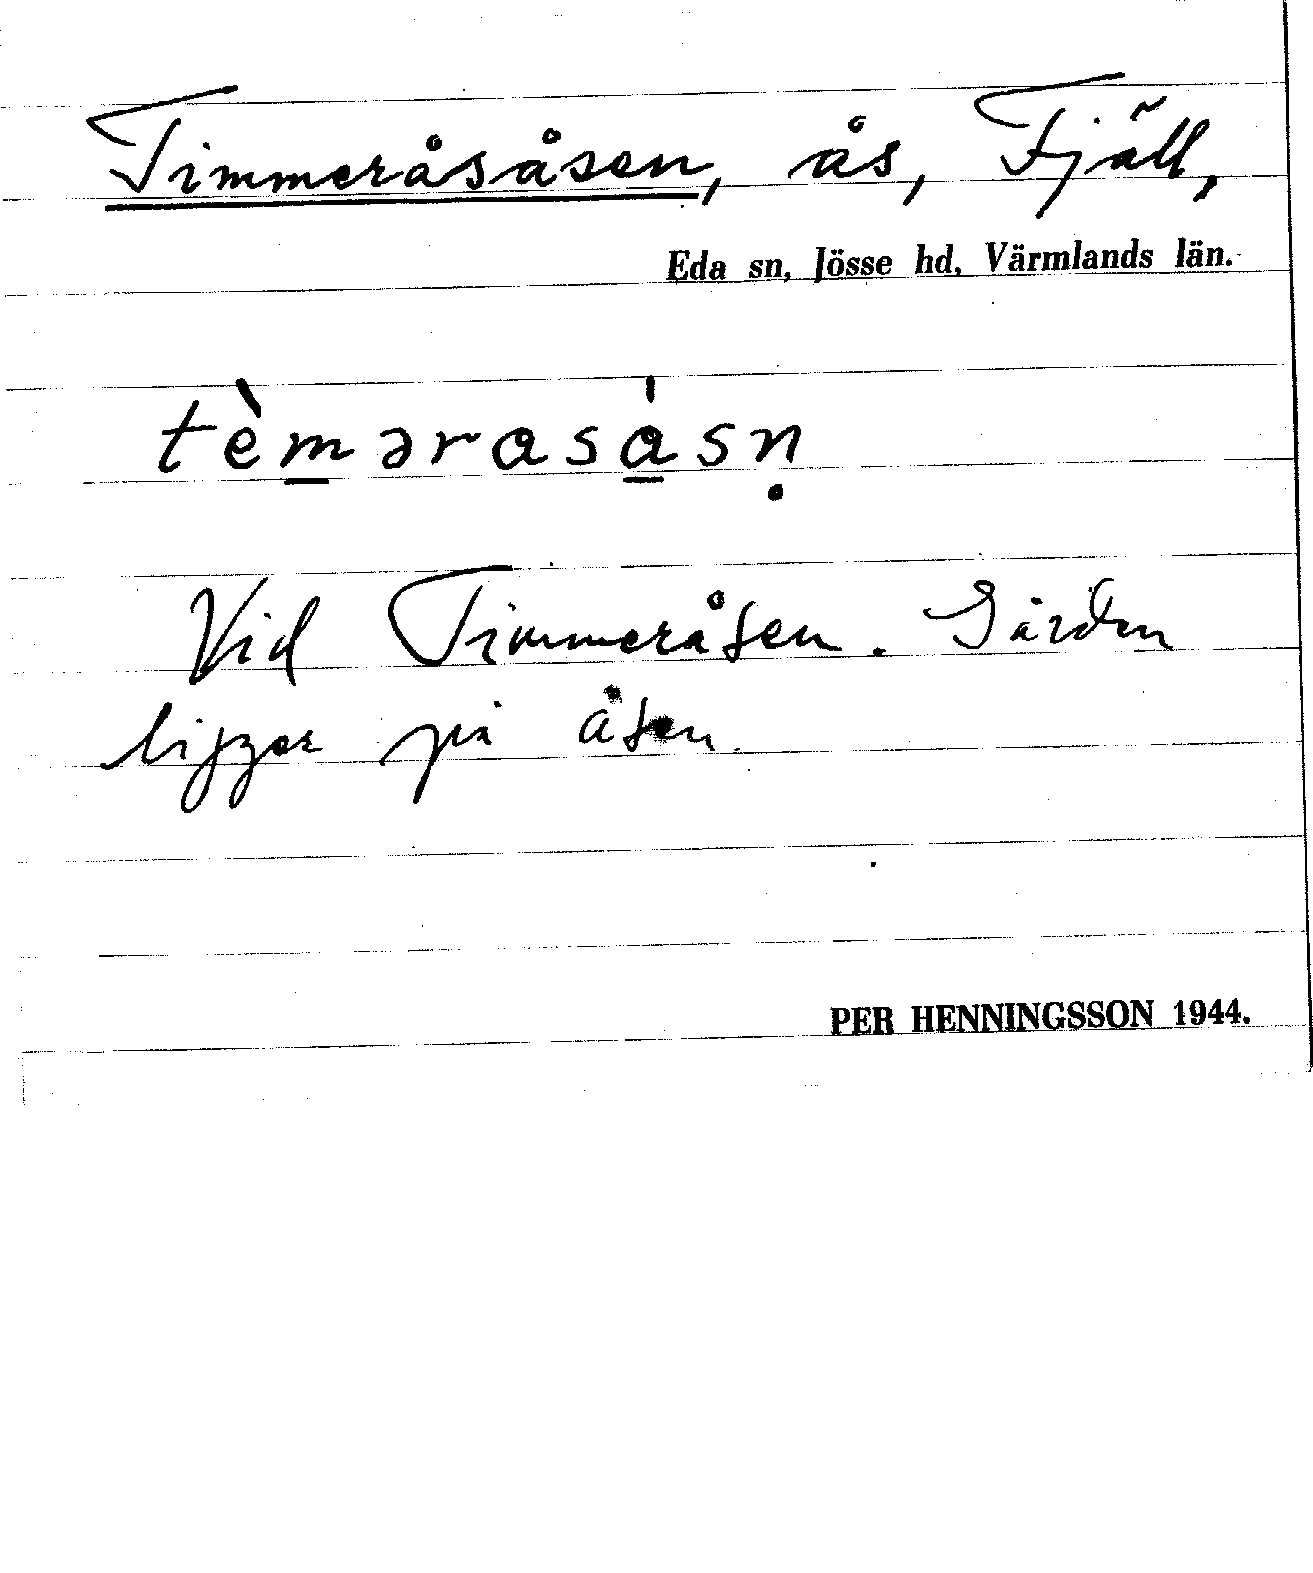 Timmeråsåsen, ås, Fjäll,
Eda sn, Jösse hd, Värmlands län.
tèm̲ərasa̲̍sṇ
Vid Timmeråsen. Gården
ligger på åsen.
PER HENNINGSSON 1944.